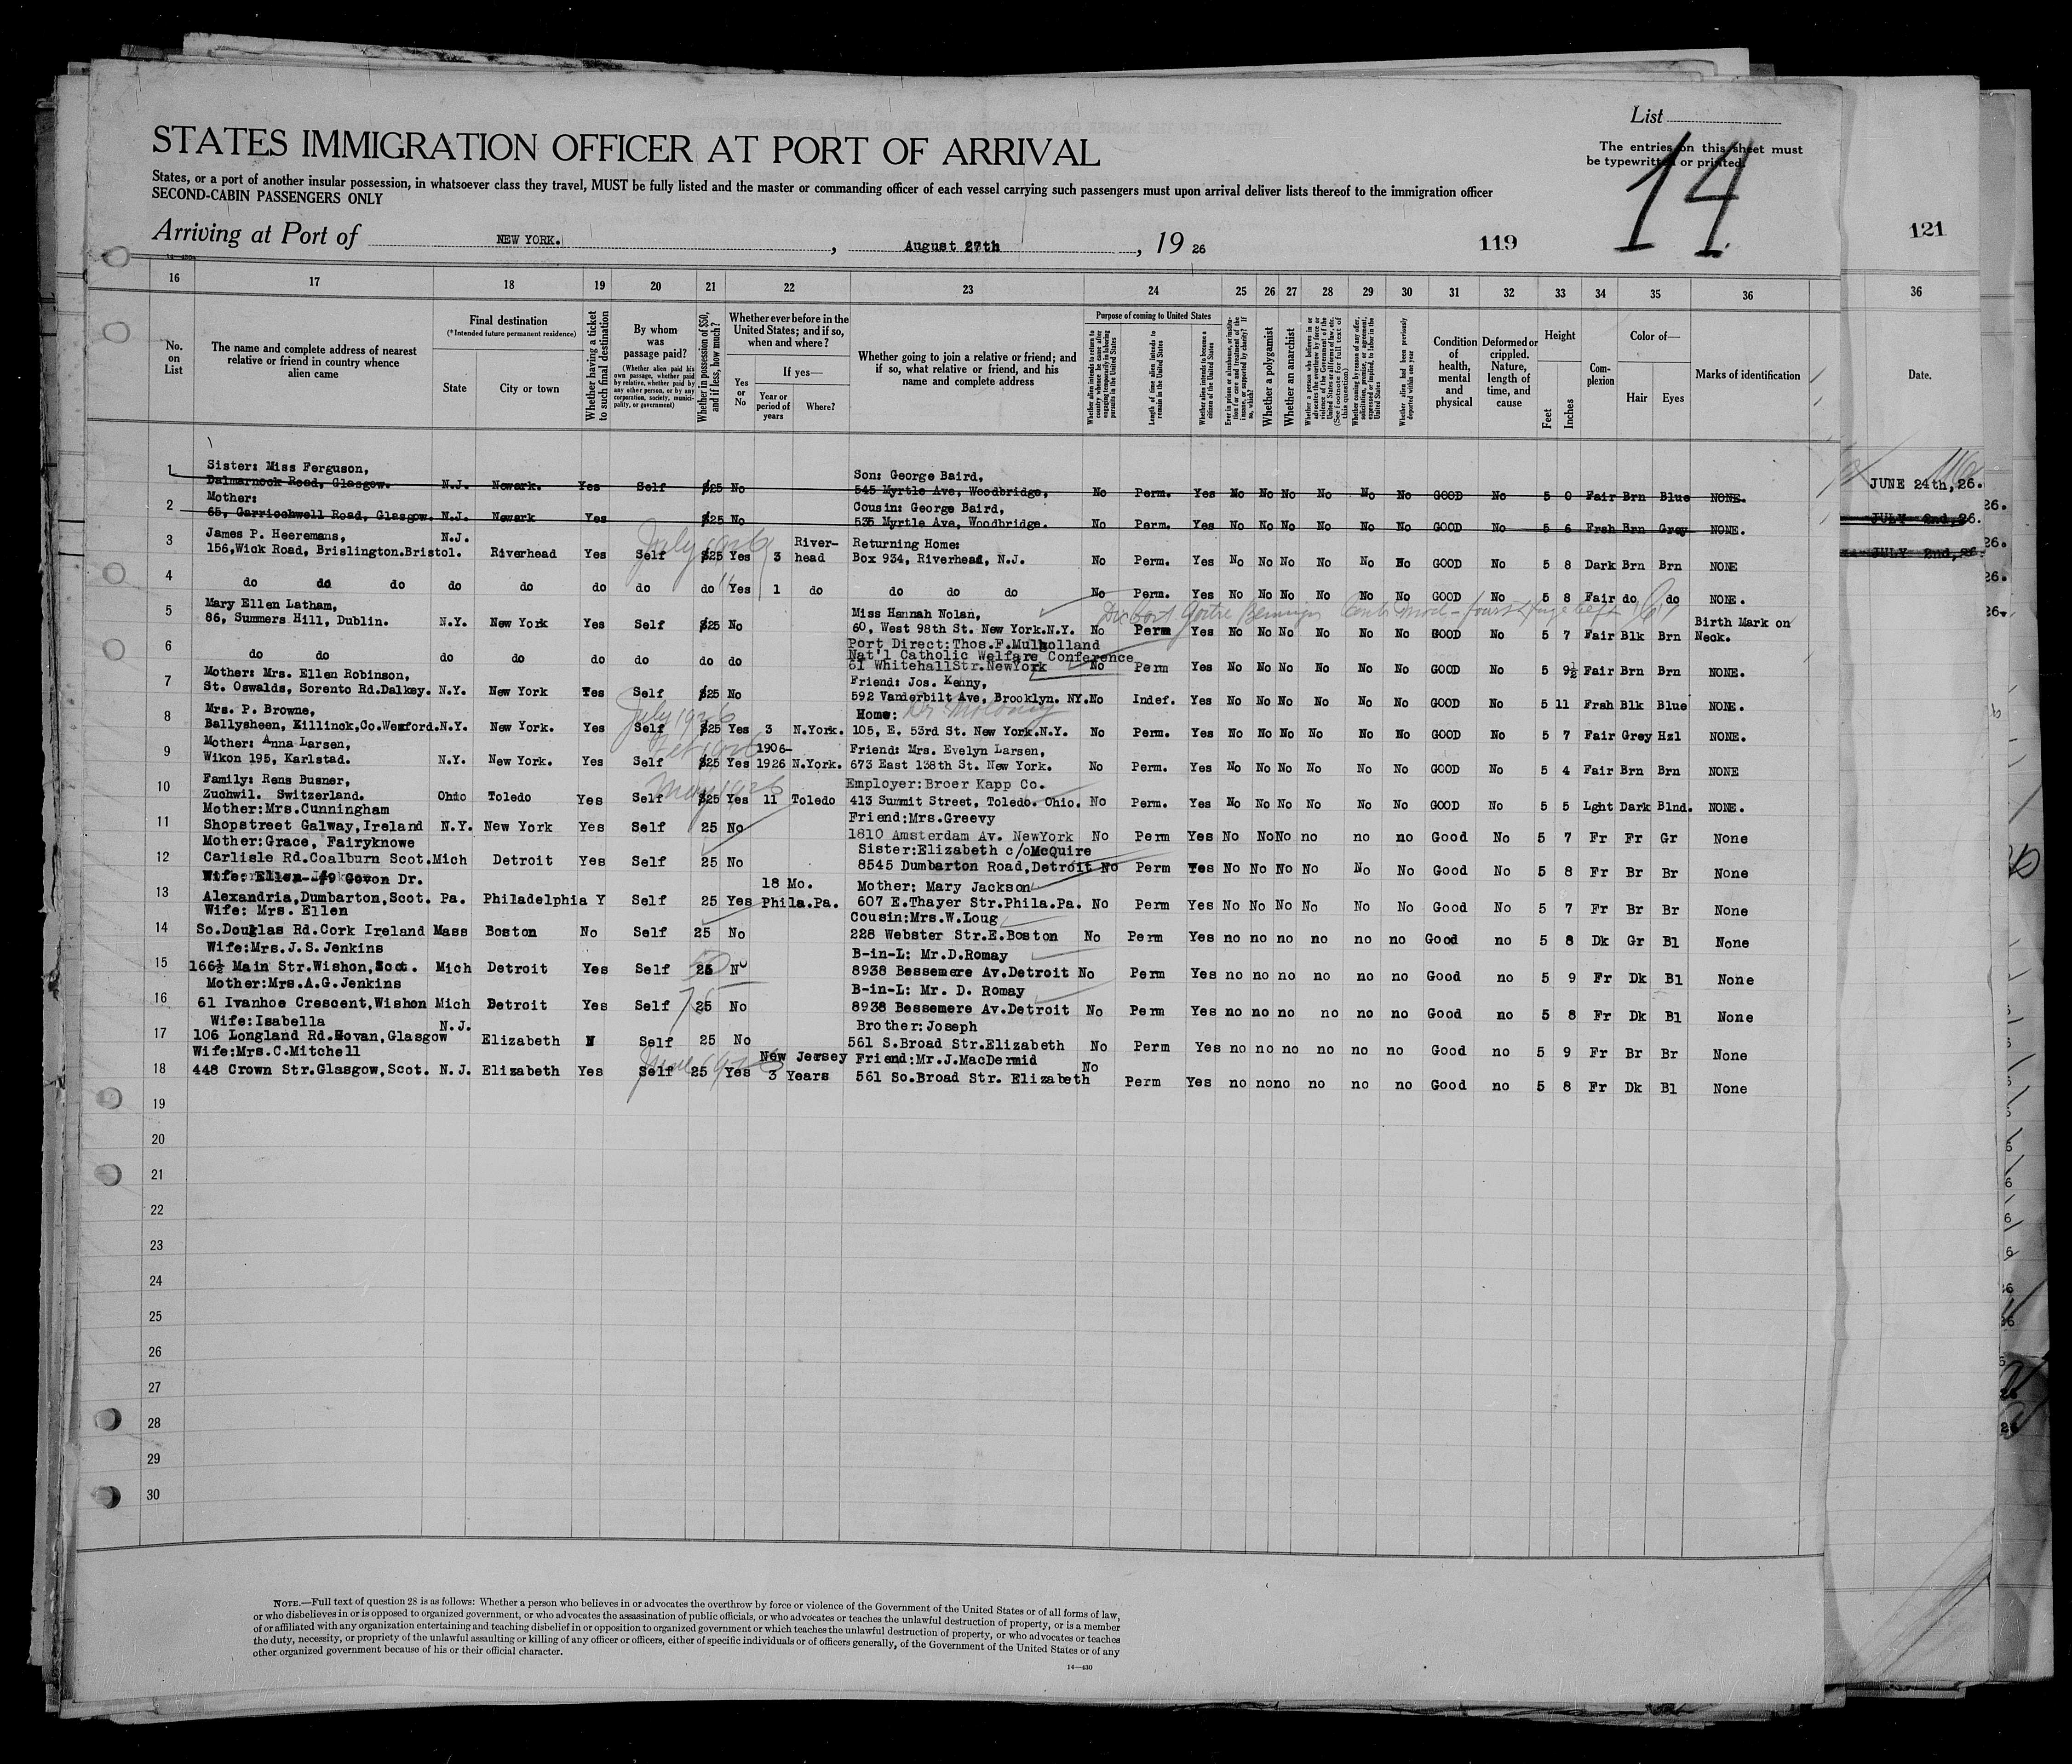 List
The entries on this sheet must
be typewritten or printed.
14
STATES IMMIGRATION OFFICER AT PORT OF ARRIVAL
States, or a port of another insular possession, in whatsoever class they travel, MUST be fully listed and the master or commanding officer of each vessel carrying such passengers must upon arrival deliver lists thereof to the immigration officer
SECOND-CABIN PASSENGERS ONLY
Arriving at Port of NEW YORK. , August 27th , 19 26
119
121
16 17 18 19 20 21 22 23 24 25 26 27 28 29 30 31 32 33 34 35 36
36
No. on List
The name and complete address of nearest relative or friend in country whence alien came
Final destination
(*Intended future permanent residence)
State
City or town
Whether having a ticket to such final destination
By whom was passage paid?
(Whether alien paid his own passage, whether paid by relative, whether paid by any other person, or by any corporation, society, municipality, or government)
Whether in possession of $50, and if less, how much?
Whether ever before in the United States; and if so, when and where?
Yes or No
If yes—
Year or period of years
Where?
Whether going to join a relative or friend; and if so, what relative or friend, and his name and complete address
Purpose of coming to United States
Whether alien intends to return to country whence he came after engaging temporarily in laboring pursuits in the United States
Length of time alien intends to remain in the United States
Whether alien intends to become a citizen of the United States
Ever in prison or almshouse, or institution for care and treatment of the insane, or supported by charity? If so, which?
Whether a polygamist
Whether an anarchist
Whether a person who believes in or advocates the overthrow by force or violence of the Government of the United States or all forms of law, etc. (See footnote for full text of this question)
Whether coming by reason of any offer, solicitation, promise, or agreement, expressed or implied, to labor in the United States
Whether alien had been previously deported within one year
Condition of health, mental and physical
Deformed or crippled. Nature, length of time, and cause
Height
Feet
Inches
Complexion
Color of—
Hair
Eyes
Marks of identification
Date.
1 Sister: Miss Ferguson,
Dalmarnock Road, Glasgow. N.J. Newark. Yes Self $25 No Son: George Baird,
545 Myrtle Ave, Woodbridge, No Perm. Yes No No No No No No GOOD No 5 0 Fair Brn Blue NONE.
JUNE 24th, 26.
2 Mother:
65, Garriochwell Road, Glasgow. N.J. Newark Yes $25 No Cousin: George Baird,
535 Myrtle Ave, Woodbridge. No Perm. Yes No No No No No No GOOD No 5 6 Fresh Brn Grey NONE.
JULY 2nd, 26.
3 James P. Heeremans,
156,Wick Road, Brislington.Bristol. N.J. Riverhead Yes Self $25 Yes 3 River-
head Returning Home:
Box 934, Riverhead, N.J. No Perm. Yes No No No No No No GOOD No 5 8 Dark Brn Brn NONE
July 1926
JULY 2nd, 26
4 do do do do do do do do Yes 1 do do do do No Perm. Yes No No No No No No GOOD No 5 8 Fair do do NONE.
5 Mary Ellen Latham,
86, Summers Hill, Dublin. N.Y. New York Yes Self $25 No Miss Hannah Nolan,
60, West 98th St. New York.N.Y. No Perm Yes No No No No No No GOOD No 5 7 Fair Blk Brn Birth Mark on
Neck.
6 do do do do do do do do Port Direct:Thos.F.Mulholland
Nat'l Catholic Welfare Conference
61 WhitehallStr.NewYork No Perm Yes No No No No No No GOOD No 5 9½ Fair Brn Brn NONE.
7 Mother: Mrs. Ellen Robinson,
St. Oswalds, Sorento Rd.Dalkey. N.Y. New York Yes Self $25 No Friend: Jos. Kenny,
592 Vanderbilt Ave. Brooklyn. NY. No Indef. Yes No No No No No No GOOD No 5 11 Frsh Blk Blue NONE.
8 Mrs. P. Browne,
Ballysheen, Killinck,Co.Wexford.N.Y. New York. Yes Self $25 Yes 3 N.York. Home: Dr. Moloney
105, E. 53rd St. New York.N.Y. No Perm. Yes No No No No No No GOOD No 5 7 Fair Grey Hzl NONE.
July 1926
9 Mother: Anna Larsen,
Wikon 195, Karlstad. N.Y. New York. Yes Self $25 Yes 1906-
1926 N.York. Friend: Mrs. Evelyn Larsen,
673 East 138th St. New York. No Perm. Yes No No No No No No GOOD No 5 4 Fair Brn Brn NONE
Feb 1926
10 Family: Rens Busner,
Zuchwil. Switzerland. Ohio Toledo Yes Self $25 Yes 11 Toledo Employer:Broer Kapp Co.
413 Summit Street, Toledo. Ohio. No Perm. Yes No No No No No No GOOD No 5 5 Lght Dark Blnd. NONE.
May 1926
11 Mother:Mrs.Cunningham
Shopstreet Galway,Ireland N.Y. New York Yes Self 25 No Friend:Mrs.Greevy
1810 Amsterdam Av. NewYork No Perm Yes No No No no no no Good No 5 7 Fr Fr Gr None
12 Mother:Grace, Fairyknowe
Carlisle Rd.Coalburn Scot.Mich Detroit Yes Self 25 No Sister:Elizabeth c/oMcQuire
8545 Dumbarton Road,Detroit No Perm Yes No No No No No No Good No 5 8 Fr Br Br None
13 Wife: Ellen-49 Govon Dr.
Alexandria,Dumbarton,Scot. Pa. Philadelphia Y Self 25 Yes 18 Mo.
Phila.Pa. Mother: Mary Jackson
607 E.Thayer Str.Phila.Pa. No Perm Yes No No No No No No Good No 5 7 Fr Br Br None
14 Wife: Mrs. Ellen
So.Douglas Rd.Cork Ireland Mass Boston No Self 25 No Cousin:Mrs.W.Loug
228 Webster Str.E.Boston No Perm Yes no no no no no no Good no 5 8 Dk Gr Bl None
15 Wife:Mrs.J.S.Jenkins
166½ Main Str.Wishon,Scot. Mich Detroit Yes Self 25 No B-in-L: Mr.D.Romay
8938 Bessemere Av.Detroit No Perm Yes no no no no no no Good no 5 9 Fr Dk Bl None
16 Mother:Mrs.A.G.Jenkins
61 Ivanhoe Crescent,Wishon Mich Detroit Yes Self 25 No B-in-L: Mr. D. Romay
8938 Bessemere Av.Detroit No Perm Yes no no no no no no Good no 5 8 Fr Dk Bl None
17 Wife:Isabella
106 Longland Rd.Hovan,Glasgow N.J. Elizabeth N Self 25 No Brother:Joseph
561 S.Broad Str.Elizabeth No Perm Yes no no no no no no Good no 5 9 Fr Br Br None
18 Wife:Mrs.C.Mitchell
448 Crown Str.Glasgow,Scot. N.J. Elizabeth Yes Self 25 Yes New Jersey
3 Years Friend:Mr.J.MacDermid
561 So.Broad Str. Elizabeth No Perm Yes no no no no no no Good no 5 8 Fr Dk Bl None
19
20
21
22
23
24
25
26
27
28
29
30
NOTE.—Full text of question 28 is as follows: Whether a person who believes in or advocates the overthrow by force or violence of the Government of the United States or of all forms of law,
or who disbelieves in or is opposed to organized government, or who advocates the assassination of public officials, or who advocates or teaches the unlawful destruction of property, or is a member
of or affiliated with any organization entertaining and teaching disbelief in or opposition to organized government or which teaches the unlawful destruction of property, or who advocates or teaches
the duty, necessity, or propriety of the unlawful assaulting or killing of any officer or officers, either of specific individuals or of officers generally, of the Government of the United States or of any
other organized government because of his or their official character.
14—430